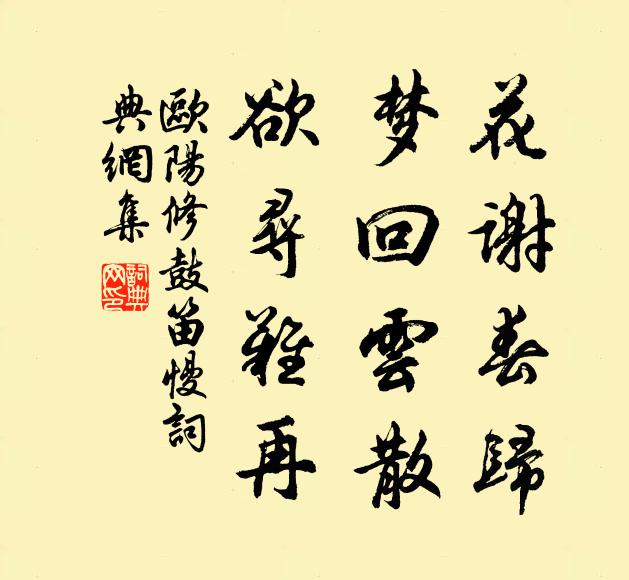 花谢春歸
梦回雲散
欲尋難再
歐陽修鼓笛慢詞
典網集
詞典网印